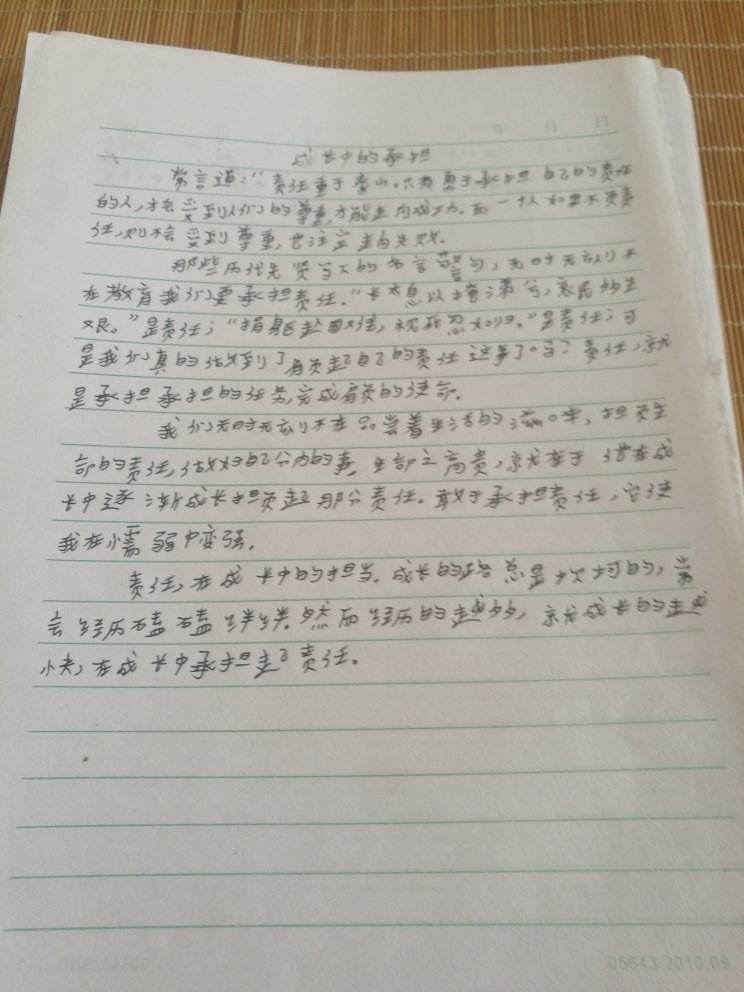 年 月 日
成长中的承担
常言道:“责任重于泰山。只有勇于承担自己的责任
的人,才会受到人们的尊重,才能走向成功。而一个人如果不负责
任,则不会受到尊重,也注定走向失败。
那些历代先贤写下的名言警句,无时无刻不
在教育我们要承担责任。“长太息以掩涕兮,哀民生的
艰。”是责任;“捐躯赴国难,视死忽如归。”是责任;可
是我们真的做到了肩负起自己的责任这事了吗?责任,就
是承担承担的任务,完成肩负的使命。
我们无时无刻不在品尝着生活的滋味,担负全
部的责任,做好自己分内的事。全部之高贵,就在于能在成
长中逐渐成长担负起那份责任。敢于承担责任,它使
我在懦弱中变强。
责任,在成长中的担当。成长的路总是坎坷的,常
会经历磕磕绊绊。然而经历的越多,就成长的越
快,在成长中承担起责任。
05643.2010.09